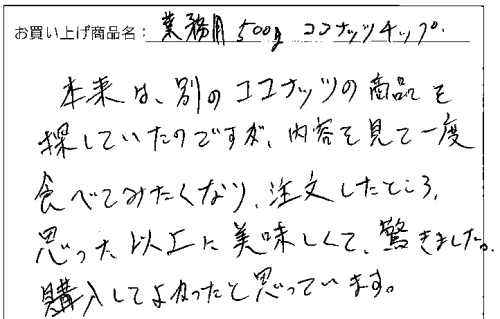 お買い上げ商品名：業務用 500g ココナッツチップ.
本来は、別のココナッツの商品を
探していたのですが、内容を見て一度
食べてみたくなり、注文したところ、
思った以上に美味しくて、驚きました。
購入してよかったと思っています。